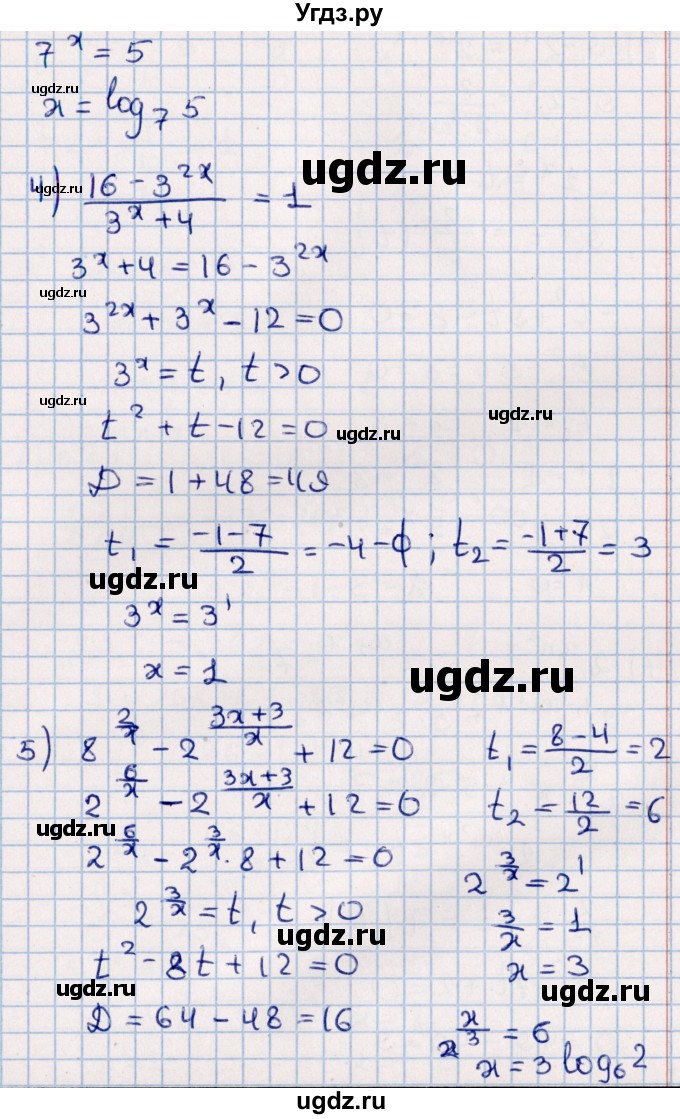 Угдз.ру
7^x = 5
ugdz.ru
x = log_7 5
ugdz.ru
4) (16 - 3^{2x})/(3^x + 4) = 1
3^x + 4 = 16 - 3^{2x}
ugdz.ru
3^{2x} + 3^x - 12 = 0
3^x = t, t > 0
ugdz.ru
ugdz.ru
t^2 + t - 12 = 0
ugdz.ru
D = 1 + 48 = 49
t_1 = (-1-7)/2 = -4 - ф; t_2 = (-1+7)/2 = 3
ugdz.ru
3^x = 3^1
x = 1
ugdz.ru
5) 8^{2/x} - 2^{(3x+3)/x} + 12 = 0
2^{6/x} - 2^{(3x+3)/x} + 12 = 0
ugdz.ru
2^{6/x} - 2^{3/x} · 8 + 12 = 0
2^{3/x} = t, t > 0
ugdz.ru
t^2 - 8t + 12 = 0
ugdz.ru
D = 64 - 48 = 16
t_1 = (8-4)/2 = 2
t_2 = 12/2 = 6
2^{3/x} = 2^1
3/x = 1
x = 3
ugdz.ru
= 6
x = 3 log_6 2
ugdz.ru
ugdz.ru